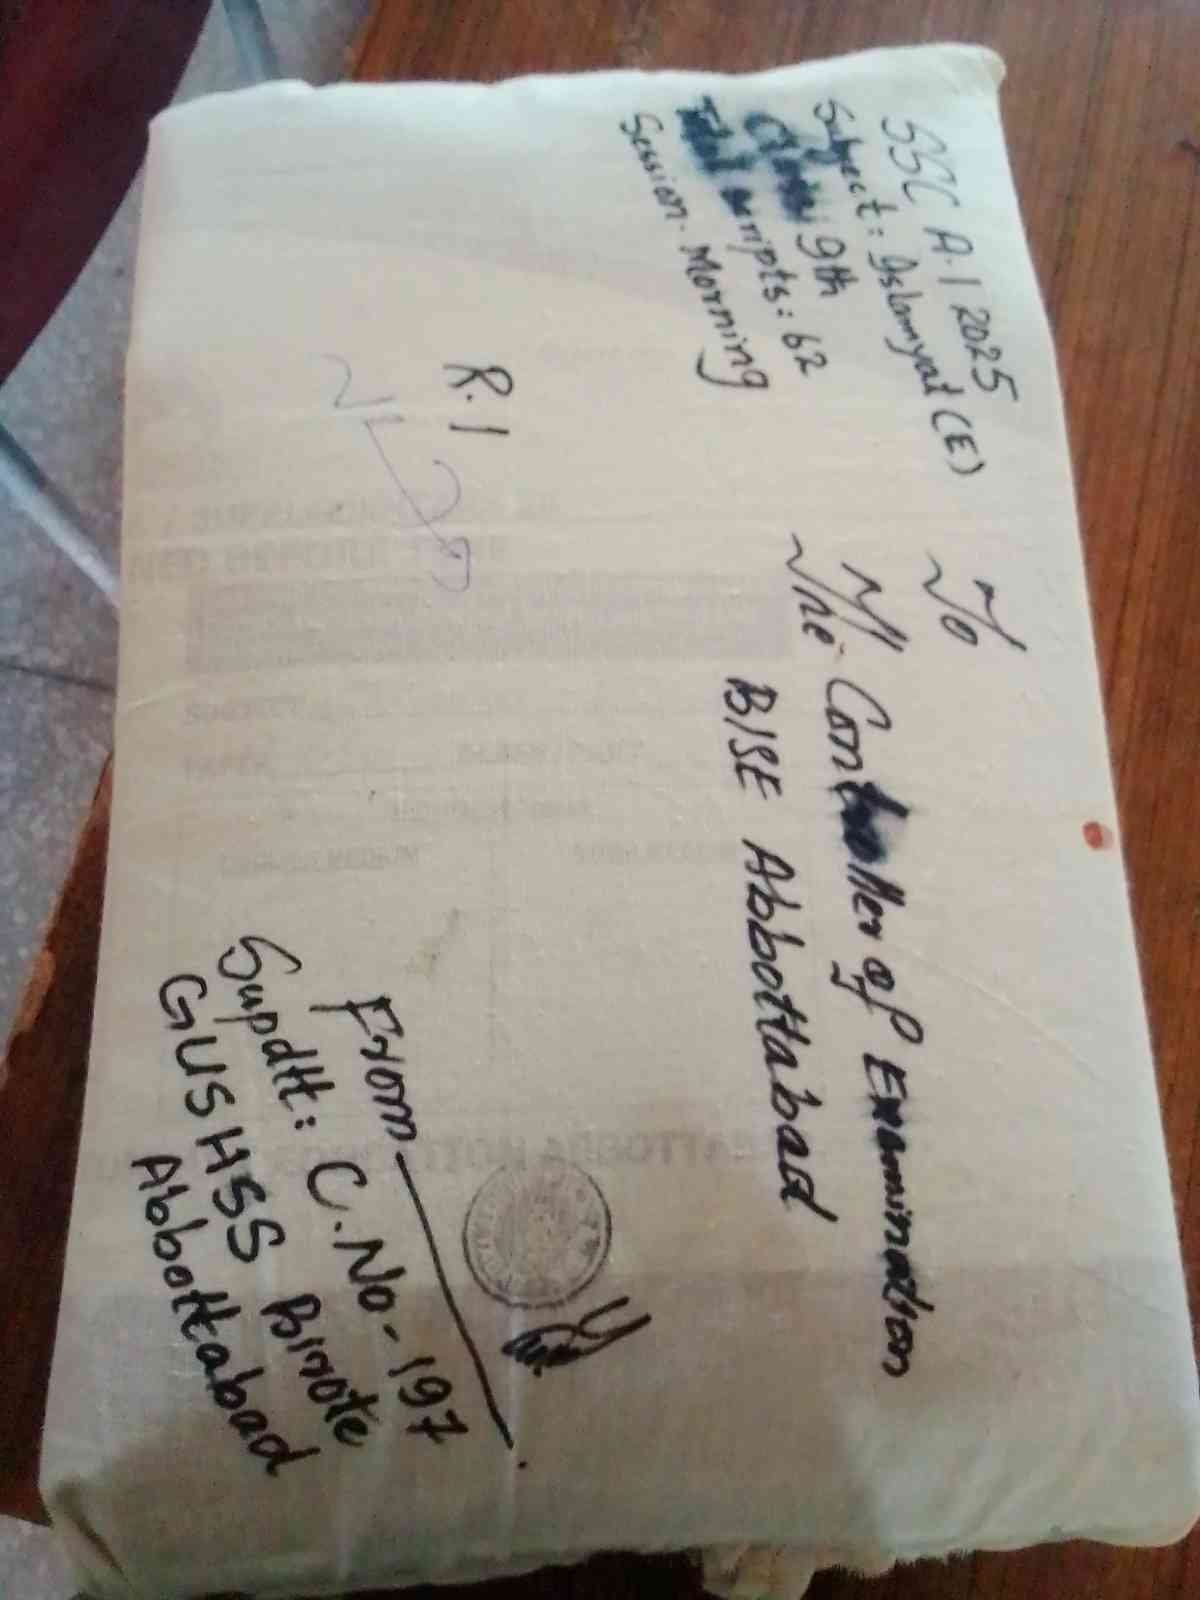 SSC A.I 2025
Subject: Islamyat (E)
Class: 9th
Total scripts: 62
Session. Morning
R.I
To
The Controller of Examination
BISE Abbottabad
From
Supdtt: C.No-197
GUSHSS Birote
Abbottabad